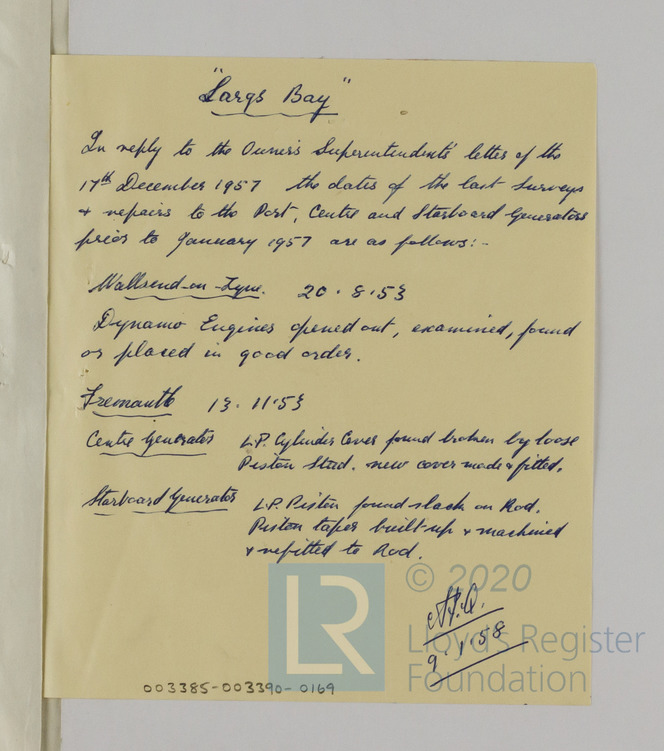 "Largs Bay"
In reply to the Owner's Superintendents' letter of the
17th December 1957 the dates of the last Surveys
& repairs to the Port, Centre and Starboard Generators
prior to January 1957 are as follows:-
Wallsend-on-Tyne. 20.8.53
Dynamo Engines opened out, examined, found
or placed in good order.
Fremantle 13.11.53
Centre Generator L.P. Cylinder Cover found broken by loose
Piston Stud. new cover made & fitted.
Starboard Generator L.P. Piston found slack on Rod.
Piston taper built-up & machined
& refitted to Rod.
9.1.58
© 2020
LR
Lloyd's Register
Foundation
003385-003390-0169